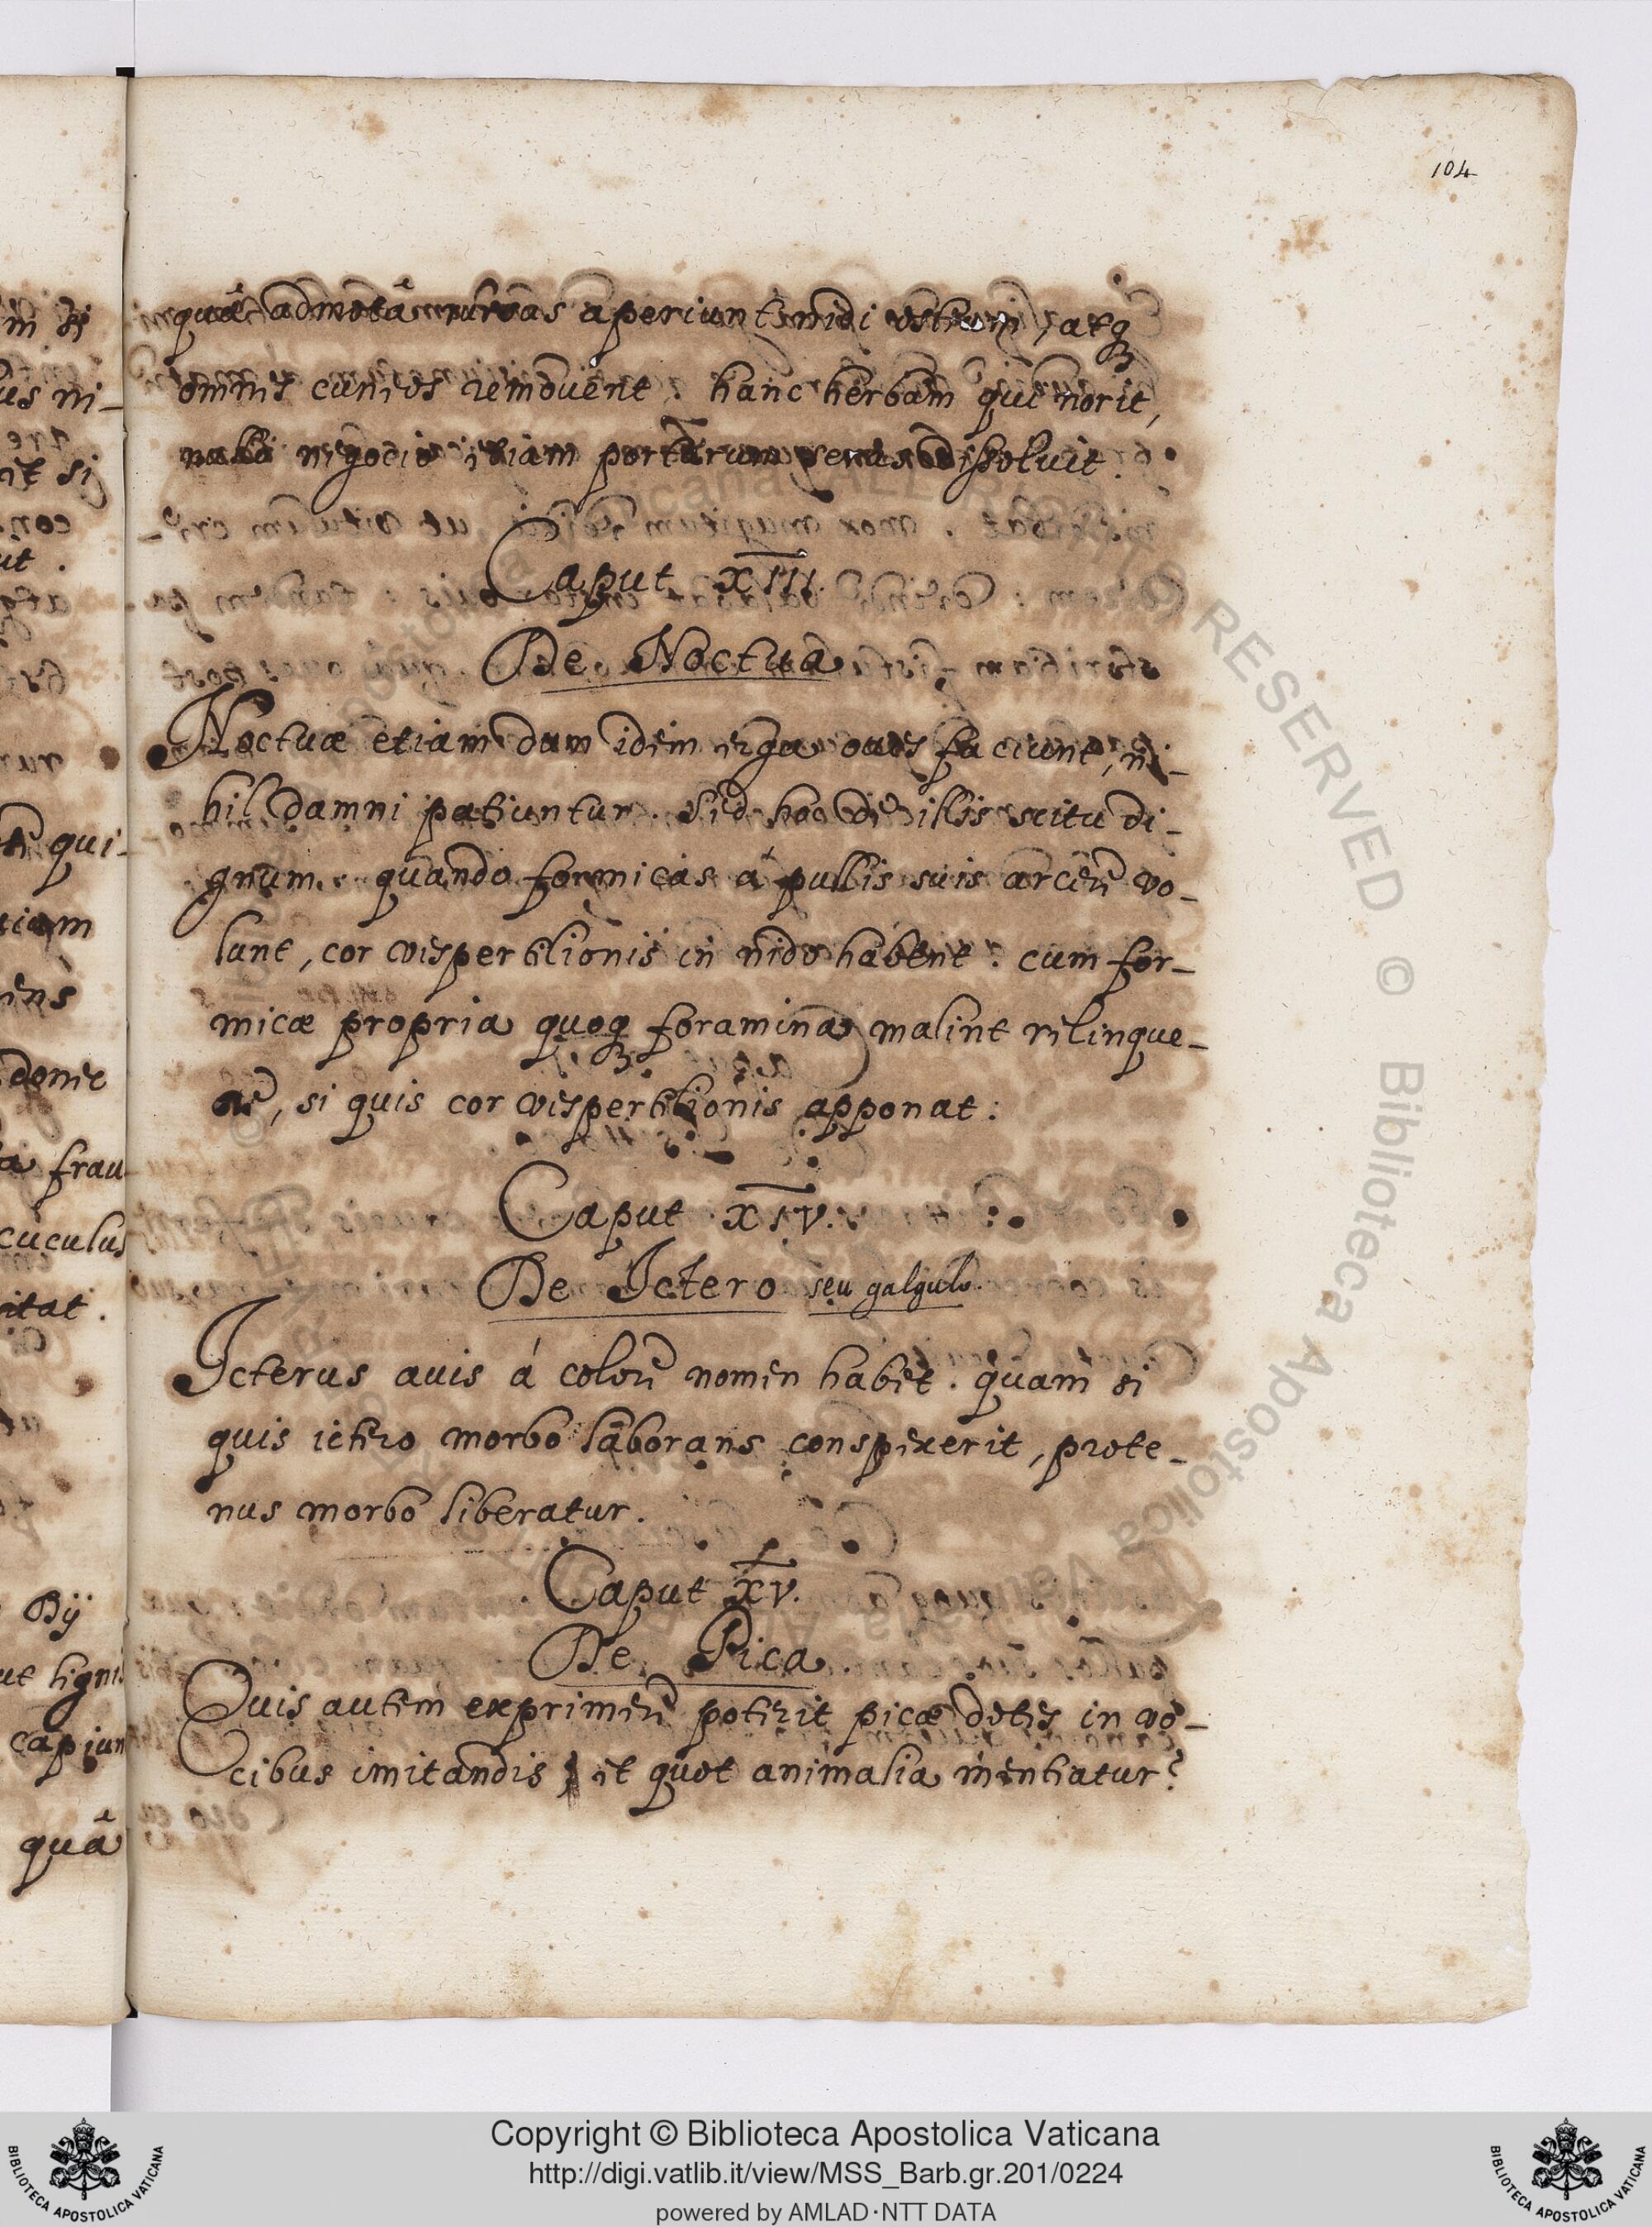 104
quâ admotâ rursus aperiunt nidi ostium, atq;
omnes cuneos removent. hanc herbam qui norit,
nullo negocio etiam portarum seras dissoluit.
Caput XIII.
De Noctua
Noctuæ etiam dum idem erga oues faciunt, ni-
hil damni patiuntur. Sed hoc de illis scitu di-
gnum. quando formicas á pullis suis arcere vo-
lunt, cor vespertilionis in nido habent. cum for-
micæ propria quoq; foramina malint relinque-
re, si quis cor vespertilionis apponat:
Caput XIV.
De Ictero seu galgulo.
Icterus auis á colore nomen habet. quam si
quis ictero morbo laborans conspexerit, prote-
nus morbo liberatur.
Caput XV.
De Pica.
Quis autem exprimere poterit picæ dotes in vo-
cibus imitandis et quot animalia mentiatur?
us ni-
it si
ut.
qui-
donec
frau
cuculus
itat.
Bij
ut ligni
capiun
quâ
Copyright © Biblioteca Apostolica Vaticana
http://digi.vatlib.it/view/MSS_Barb.gr.201/0224
powered by AMLAD·NTT DATA
BIBLIOTECA APOSTOLICA VATICANA
BIBLIOTECA APOSTOLICA VATICANA